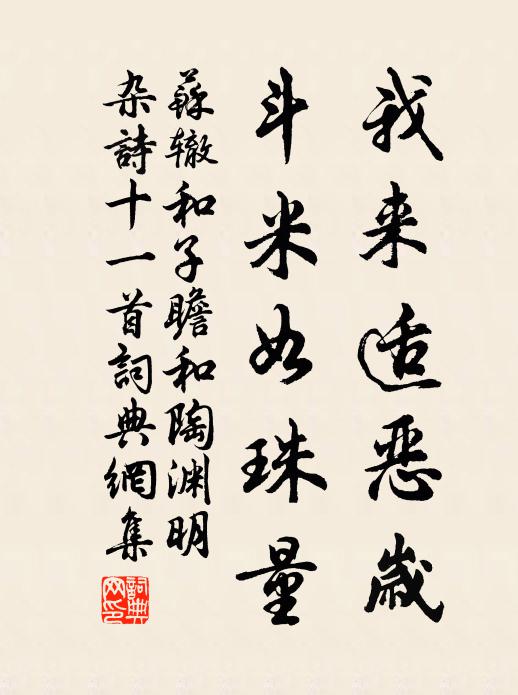 我来适恶歳
斗米如珠量
蘇辙和子瞻和陶渊明
杂詩十一首詞典網集
詞典网印